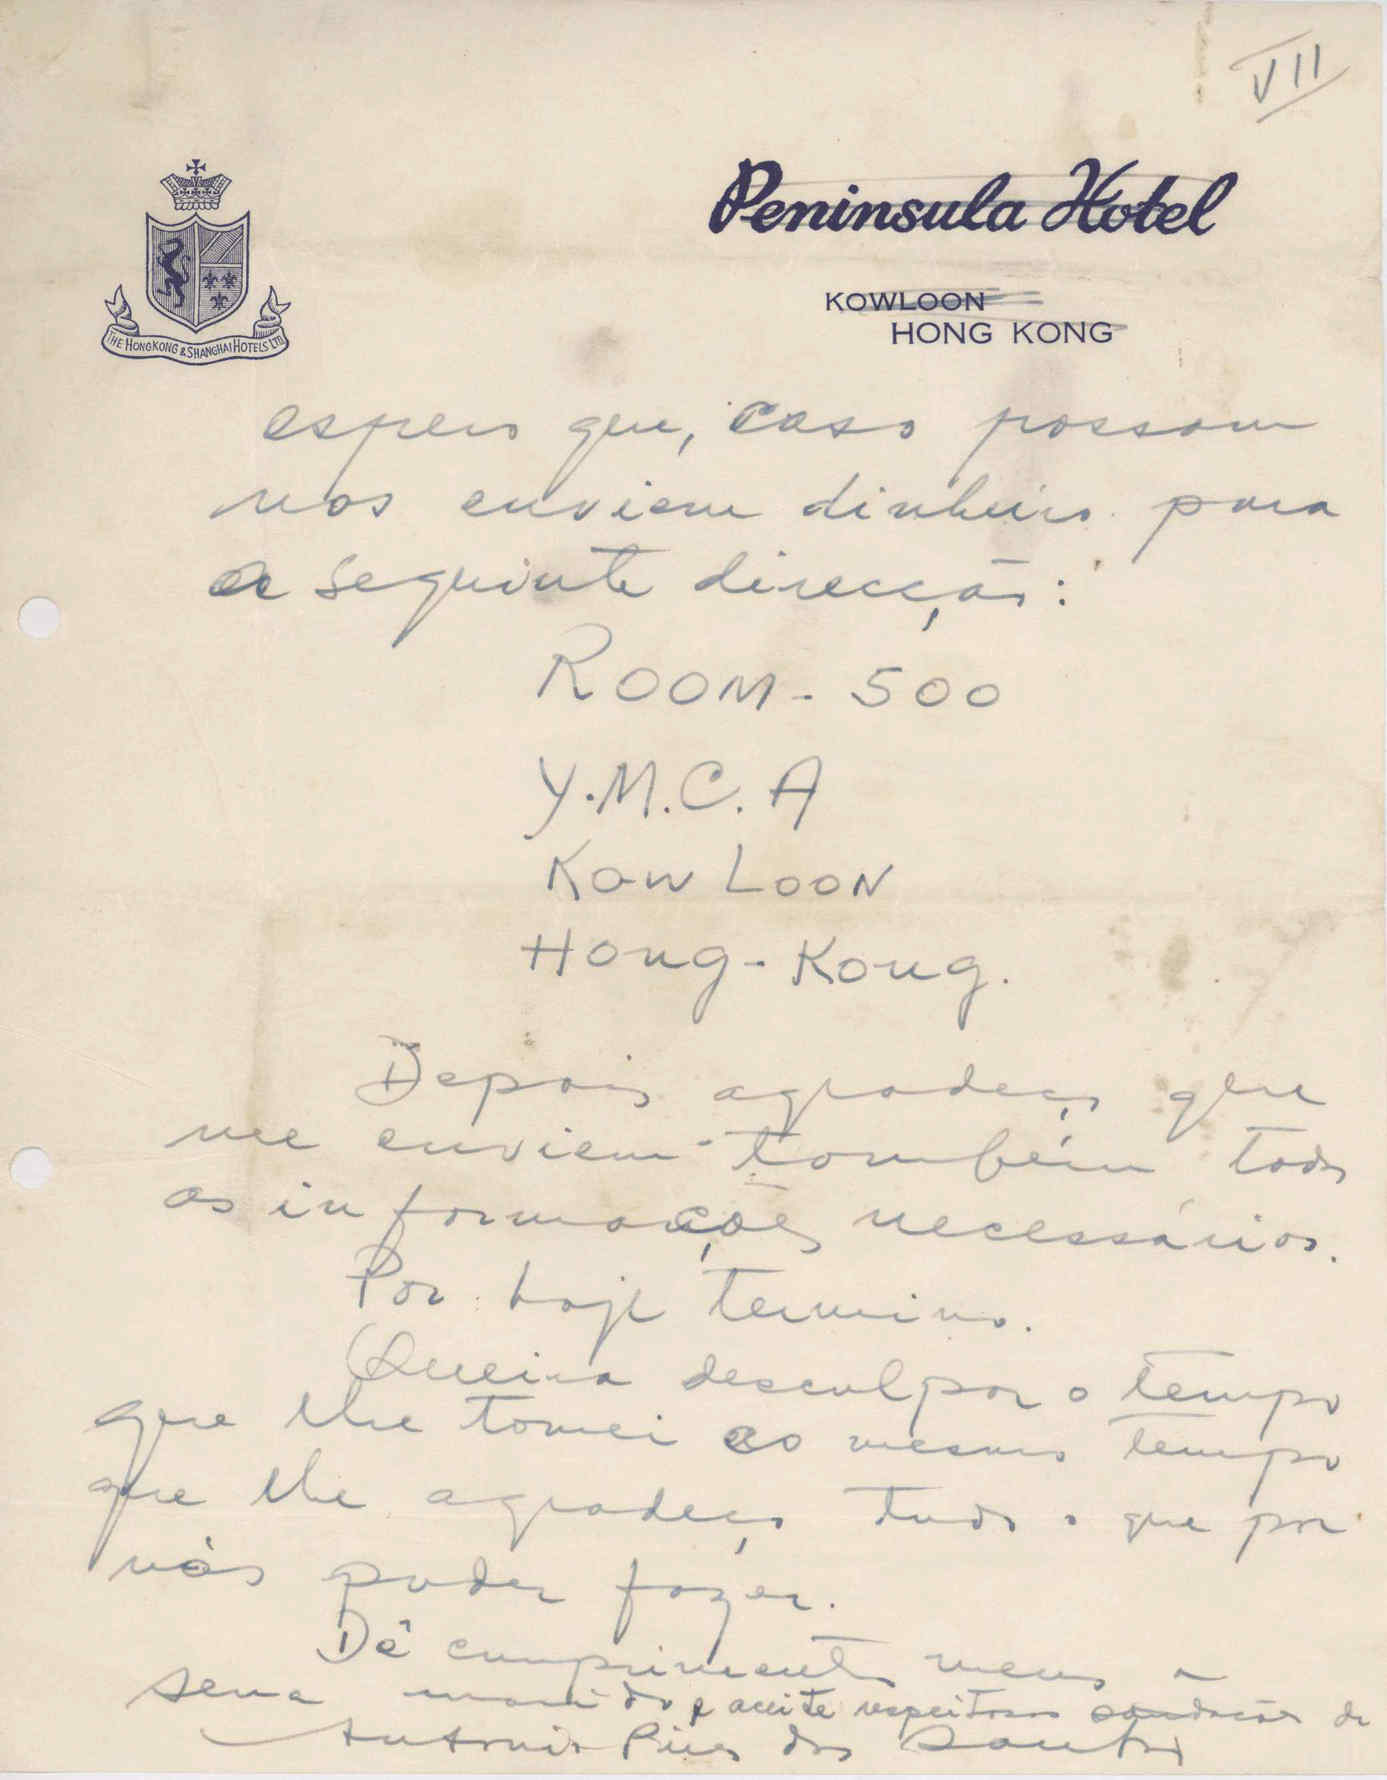 VII
Peninsula Hotel
KOWLOON
HONG KONG
THE HONGKONG & SHANGHAI HOTELS LTD
espero que, caso possam
nos enviem dinheiro para
a seguinte direcção:
ROOM - 500
Y.M.C.A
KOW LOON
Hong-Kong.
Depois agradeço que
me enviem também todas
as informações necessárias.
Por hoje termino.
Queira desculpar o tempo
que lhe tomei ao mesmo tempo
que lhe agradeço tudo o que por
nós poder fazer.
Dê cumprimentos meus a
seu marido e aceite respeitosas saudações de
Antonio Pires dos Santos